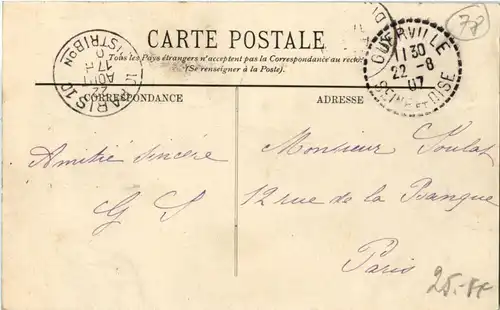 78
CARTE POSTALE
Tous les Pays étrangers n'acceptent pas la Correspondance au recto
(Se renseigner à la Poste).
CORRESPONDANCE
ADRESSE
GUERVILLE
11 30
22 - 8
07
SEINE ET OISE
PARIS 10
DISTRIBON
22
AOUT
Amitié sincère
G S
Monsieur Soulat
12 rue de la Banque
Paris
25.-